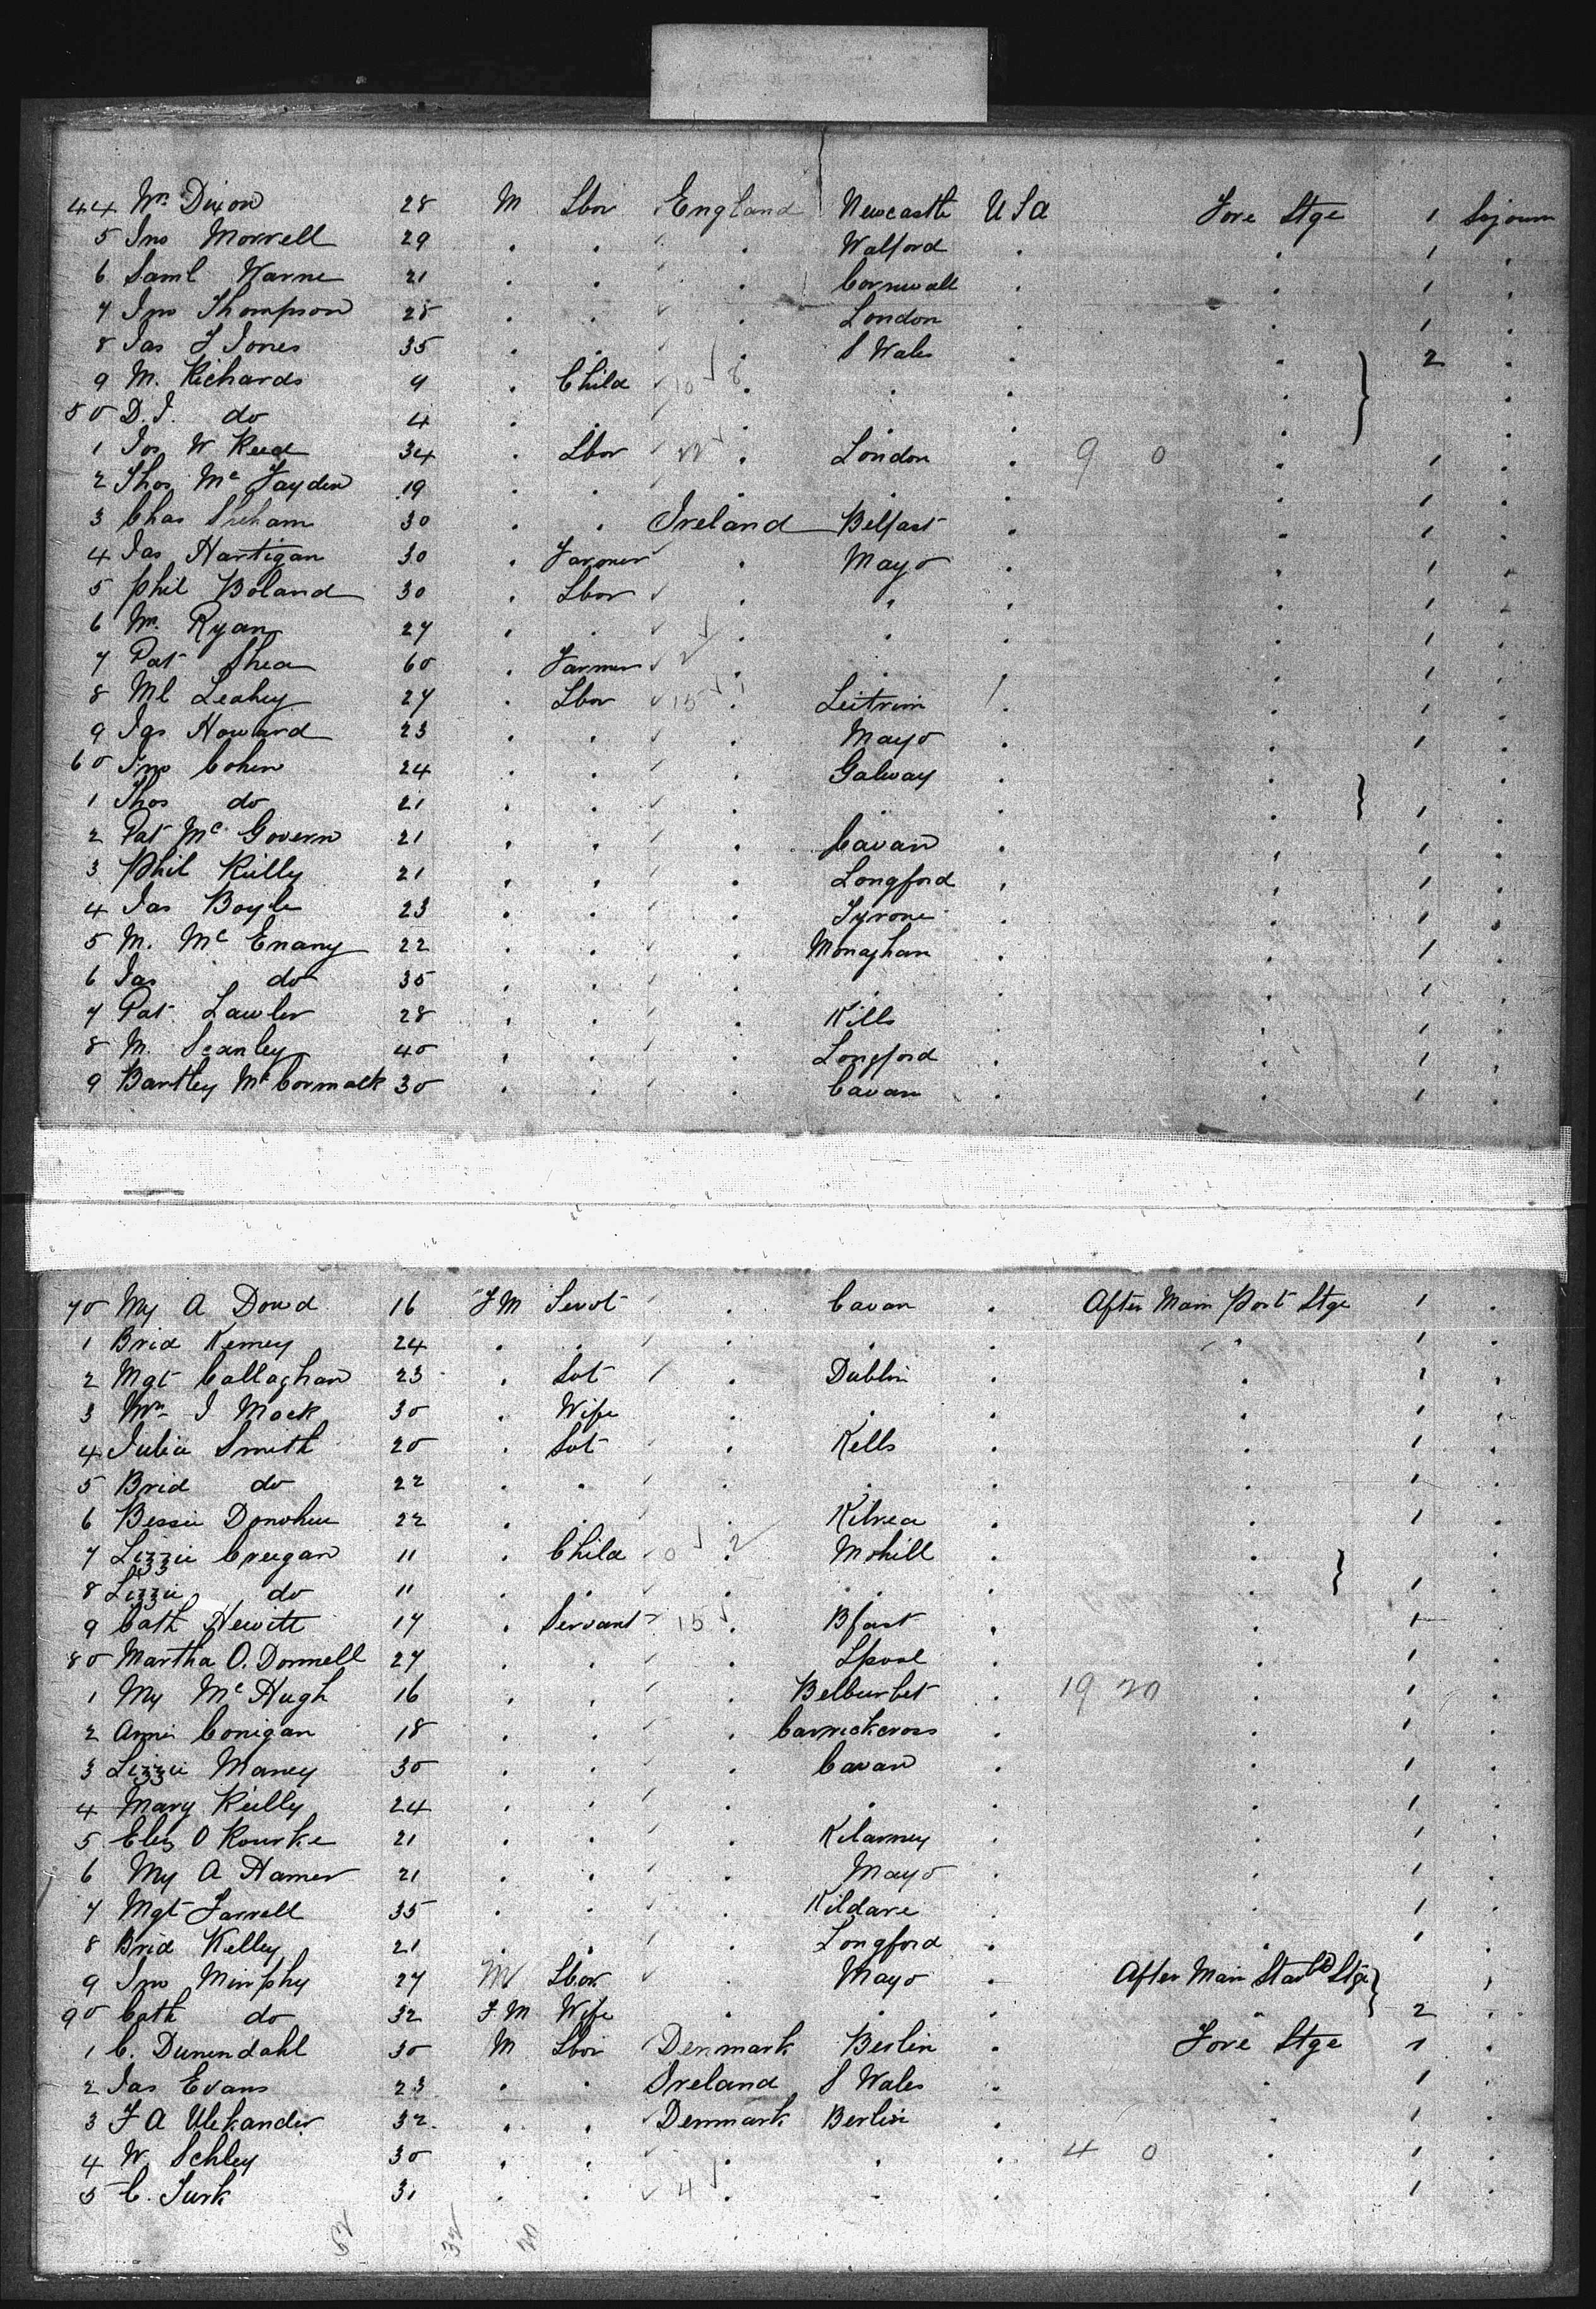 44 Wm Dixon 28 M Lbor England Newcastle U S a Fore Stge 1 Sojourn
5 Jno Morrell 29 . . . Walford . . 1 .
6 Saml Warne 21 . . . Cornwall . . 1 .
7 Jno Thompson 28 . . . London . . 1 .
8 Jas J Jones 35 . . . S Wales . . 2 .
9 M. Richards 9 . Child 10 8 . . . . .
50 D. J. do 4 . . . . . . .
1 Jos W Reed 34 . Lbor 22 . London . 9 0 . 1 .
2 Thos Mc Fayden 19 . . . . . . 1 .
3 Chas 30 . . Ireland Belfast . . 1 .
4 Jas Hartigan 30 . Farmer . Mayo . . 1 .
5 Phil Boland 30 . Lbor . " . . 1 .
6 Wm. Ryan 27 . . . . . . 1 .
7 Pat Shea 60 . Farmer 2 . . . . 1 .
8 Ml Leahey 27 . Lbor 15 1 . Leitrim . . 1 .
9 Jas Howard 23 . . . Mayo . . 1 .
60 Jno Cohen 24 . . . Galway . . .
1 Thos do 21 . . . . . . 1 .
2 Pat Mc Govern 21 . . . Cavan . . 1 .
3 Phil Reilly 21 . . . Longford . . 1 .
4 Jas Boyle 23 . . . Tyrone . . 1 .
5 M. Mc Enany 22 . . . Monaghan . . 1 .
6 Jas do 35 . . . . . . 1 .
7 Pat Lawler 28 . . . Kills . . 1 .
8 M. Scanley 40 . . . Longford . . 1 .
9 Bartley Mc Cormack 30 . . . Cavan . . 1 .
70 My A Dowd 16 F M Servt . Cavan . After Main Port Stge 1 .
1 Brid Kerney 24 . . . . . " 1 .
2 Mgt Callaghan 23 . Svt . Dublin . . 1 .
3 Mrs J Mack 30 . Wife . . . . 1 .
4 Julia Smith 20 . Svt . Kells . . 1 .
5 Brid do 22 . . . . . . 1 .
6 Bessie Donohue 22 . . . Kilrea . . 1 .
7 Lizzie Creegan 11 . Child 0 2 . Mohill . . .
8 Lizzie do 11 . . . . . . 1 .
9 Cath Hewitt 17 . Servant 15 . Bfast . . 1 .
80 Martha O. Donnell 27 . . . Lpool . . 1 .
1 My Mc Hugh 16 . . . Belburbet . 19 20 . 1 .
2 Annie Conigan 18 . . . Carrickcross . . 1 .
3 Lizzie Maney 30 . . . Cavan . . 1 .
4 Mary Reilly 24 . . . . . . 1 .
5 Eliz O Rourke 21 . . . Kilarney . . 1 .
6 My A Hamer 21 . . . Mayo . . 1 .
7 Mgt Farrell 35 . . . Kildare . . 1 .
8 Brid Kelley 21 . . . Longford . . 1 .
9 Jno Minphy 27 M Lbor . Mayo . After Main Starbd Stge .
90 Cath do 32 F M Wife . . . " 2 .
1 C. Dunendahl 30 M Lbor Denmark Berlin . Fore Stge 1 .
2 Jas Evans 23 . . Ireland S Wales . . 1 .
3 F A Ulekander 32 . . Denmark Berlin . . 1 .
4 W. Schley 30 . . . . . 4 0 . 1 .
5 C. Turk 31 . . 4 . . . . 1 .
52 32 20